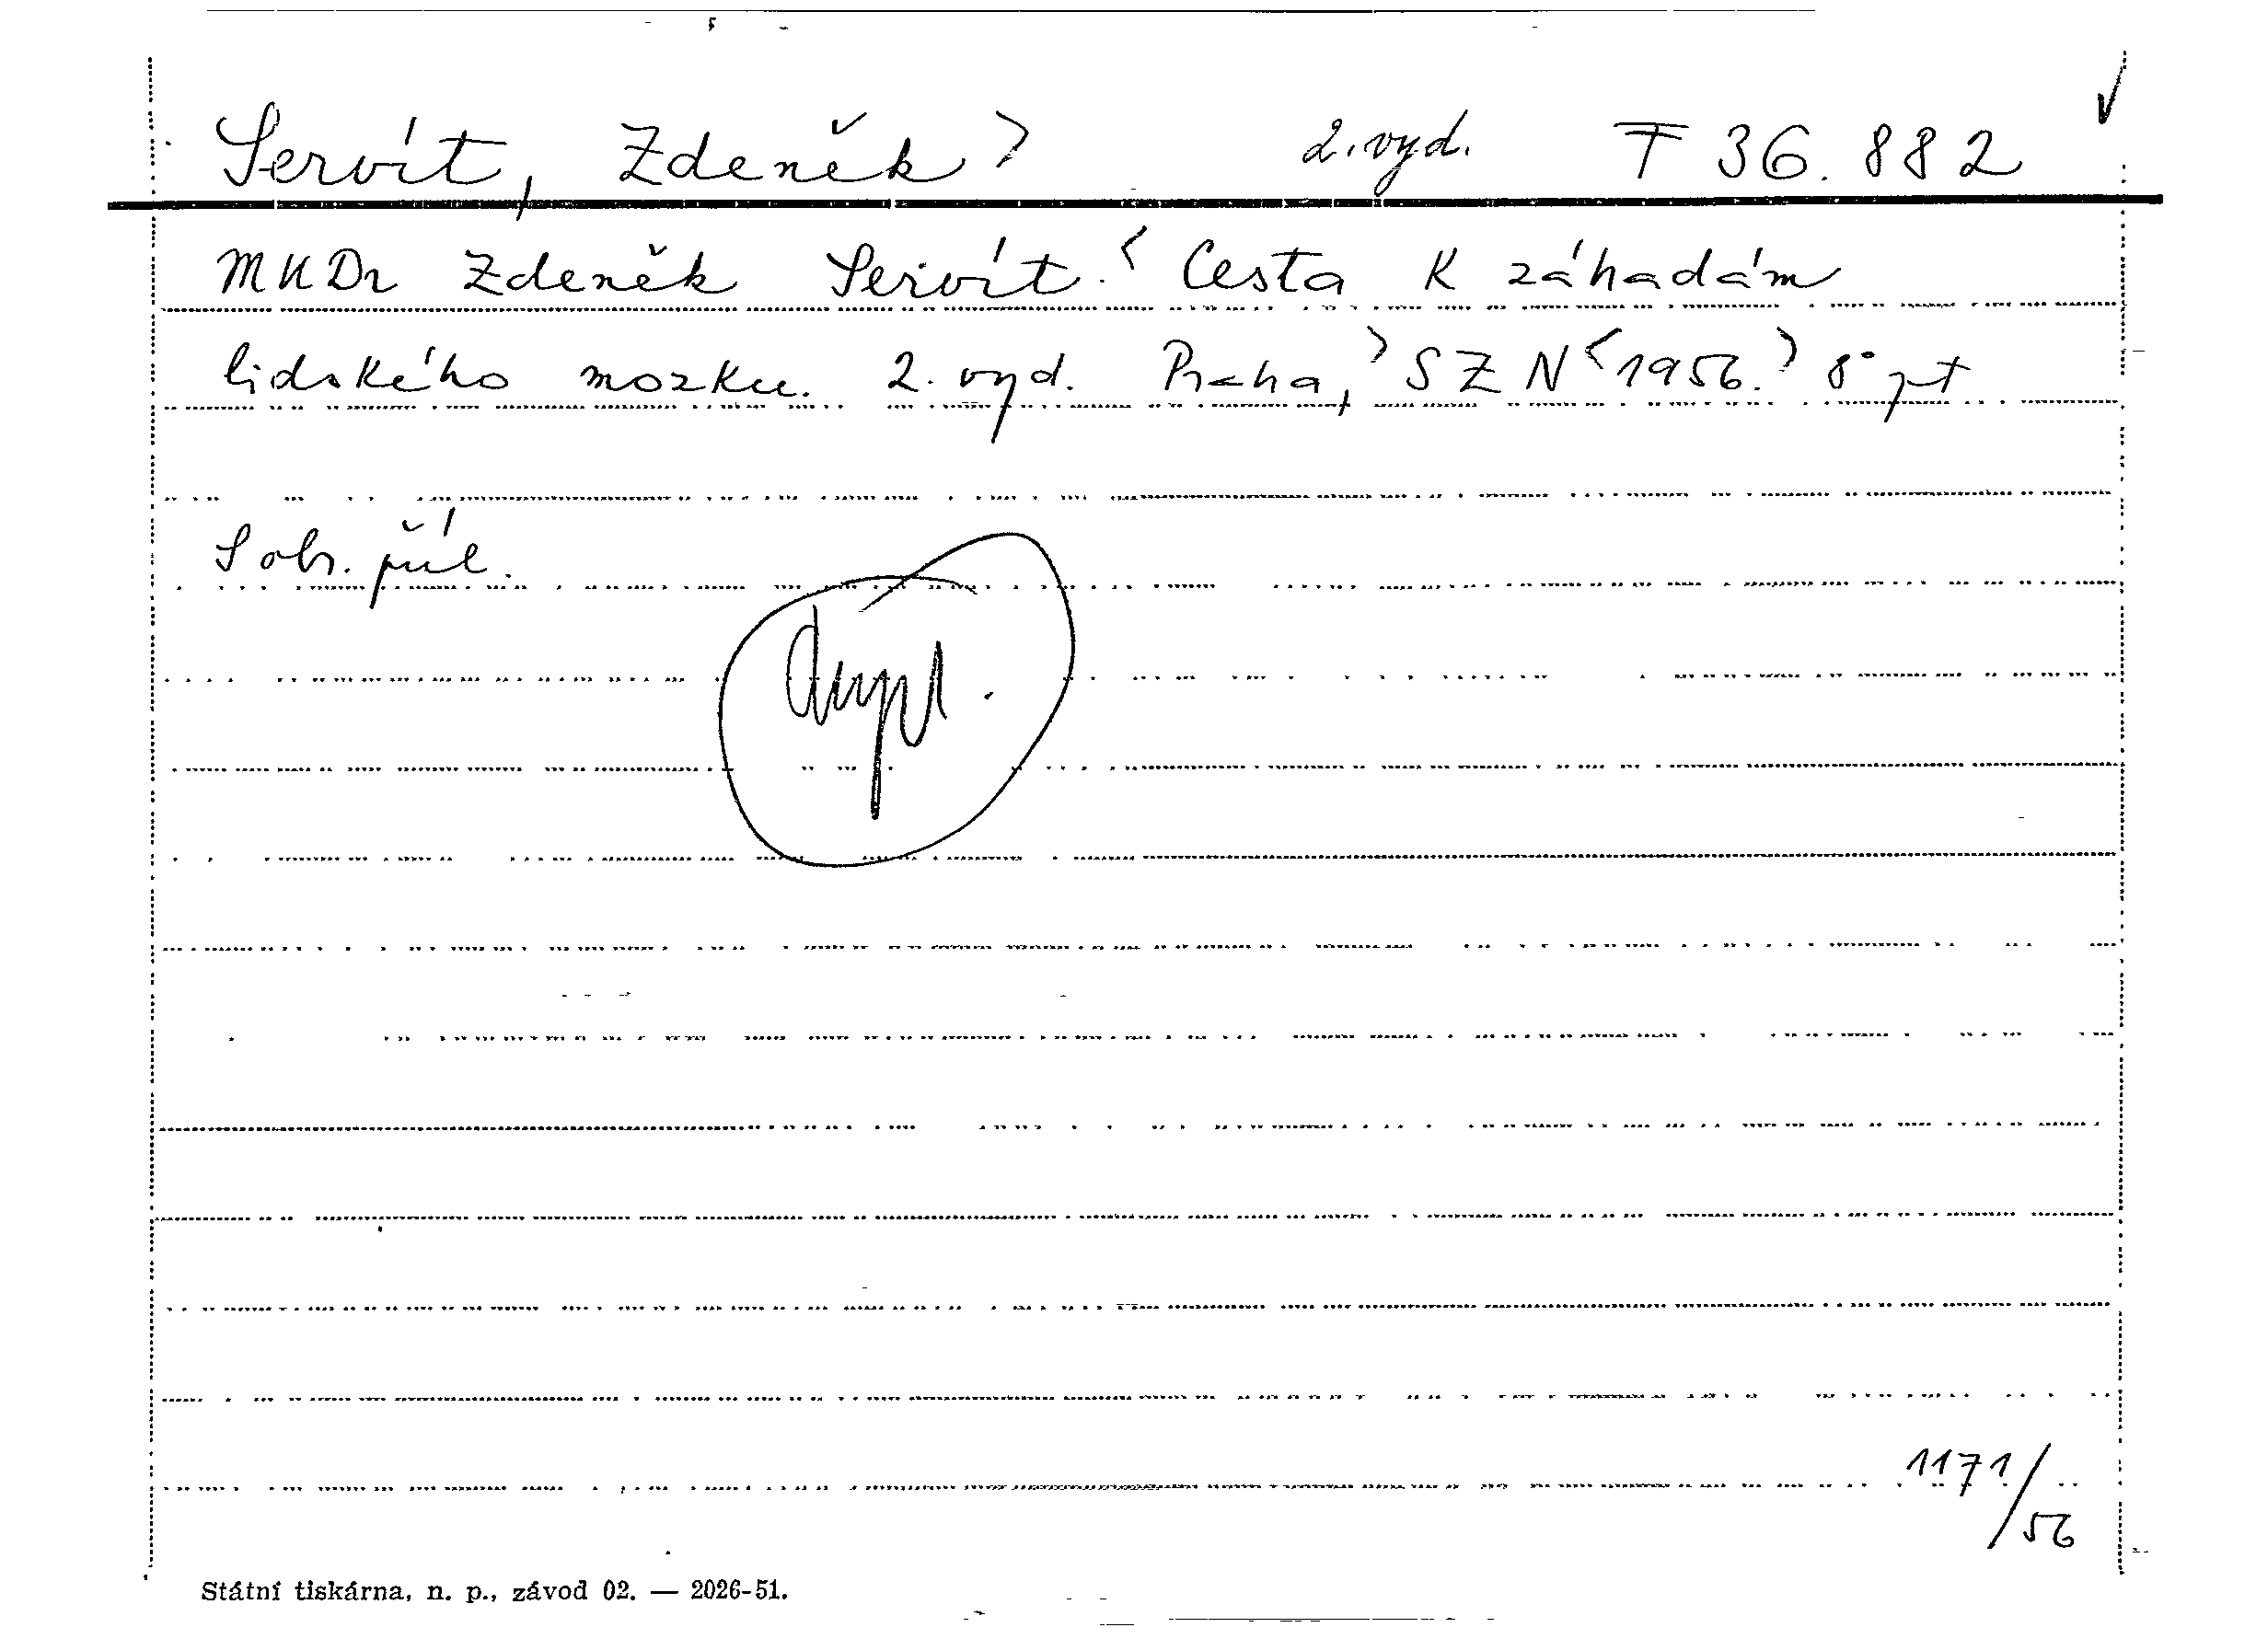 Servít, Zdeněk > 2. vyd. F 36.882
MUDr Zdeněk Servít. < Cesta k záhadám
lidského mozku. 2. vyd. Praha, > SZN < 1956. > 8° pt
S obr. příl.
1171/56
Státní tiskárna, n. p., závod 02. — 2026-51.